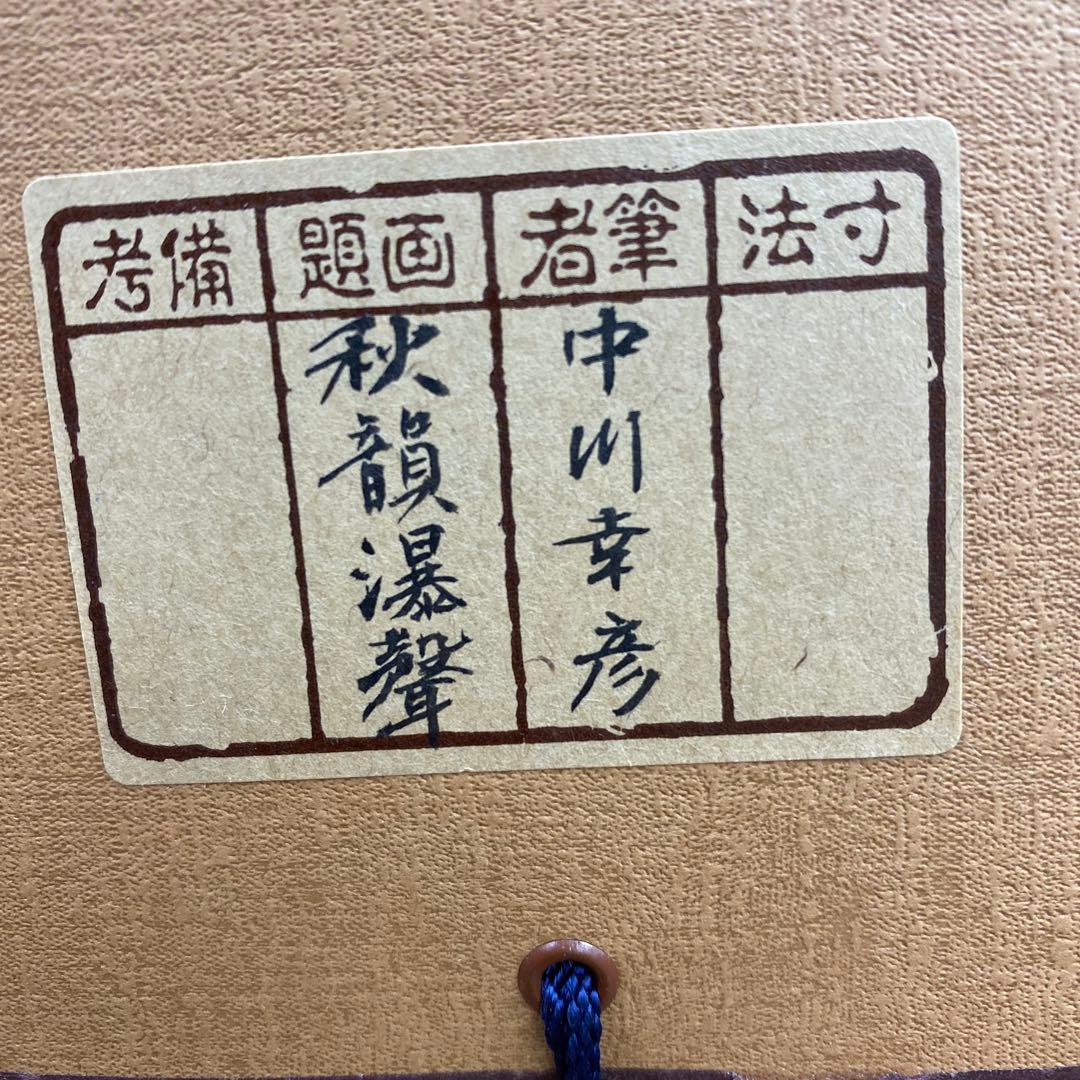 寸法
筆者
中川幸彦
画題
秋韻瀑聲
備考